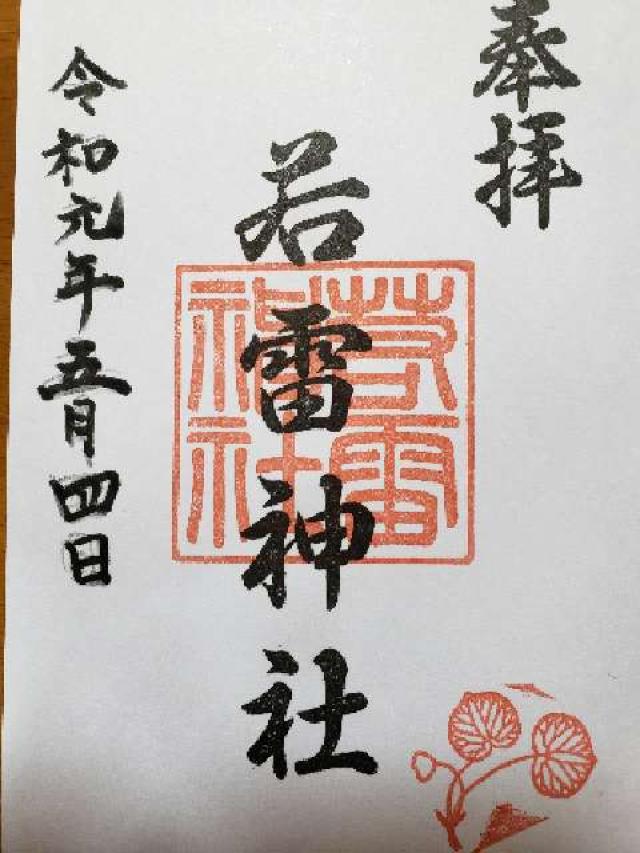 奉拝
若雷神社
若雷
神社
令和元年五月四日